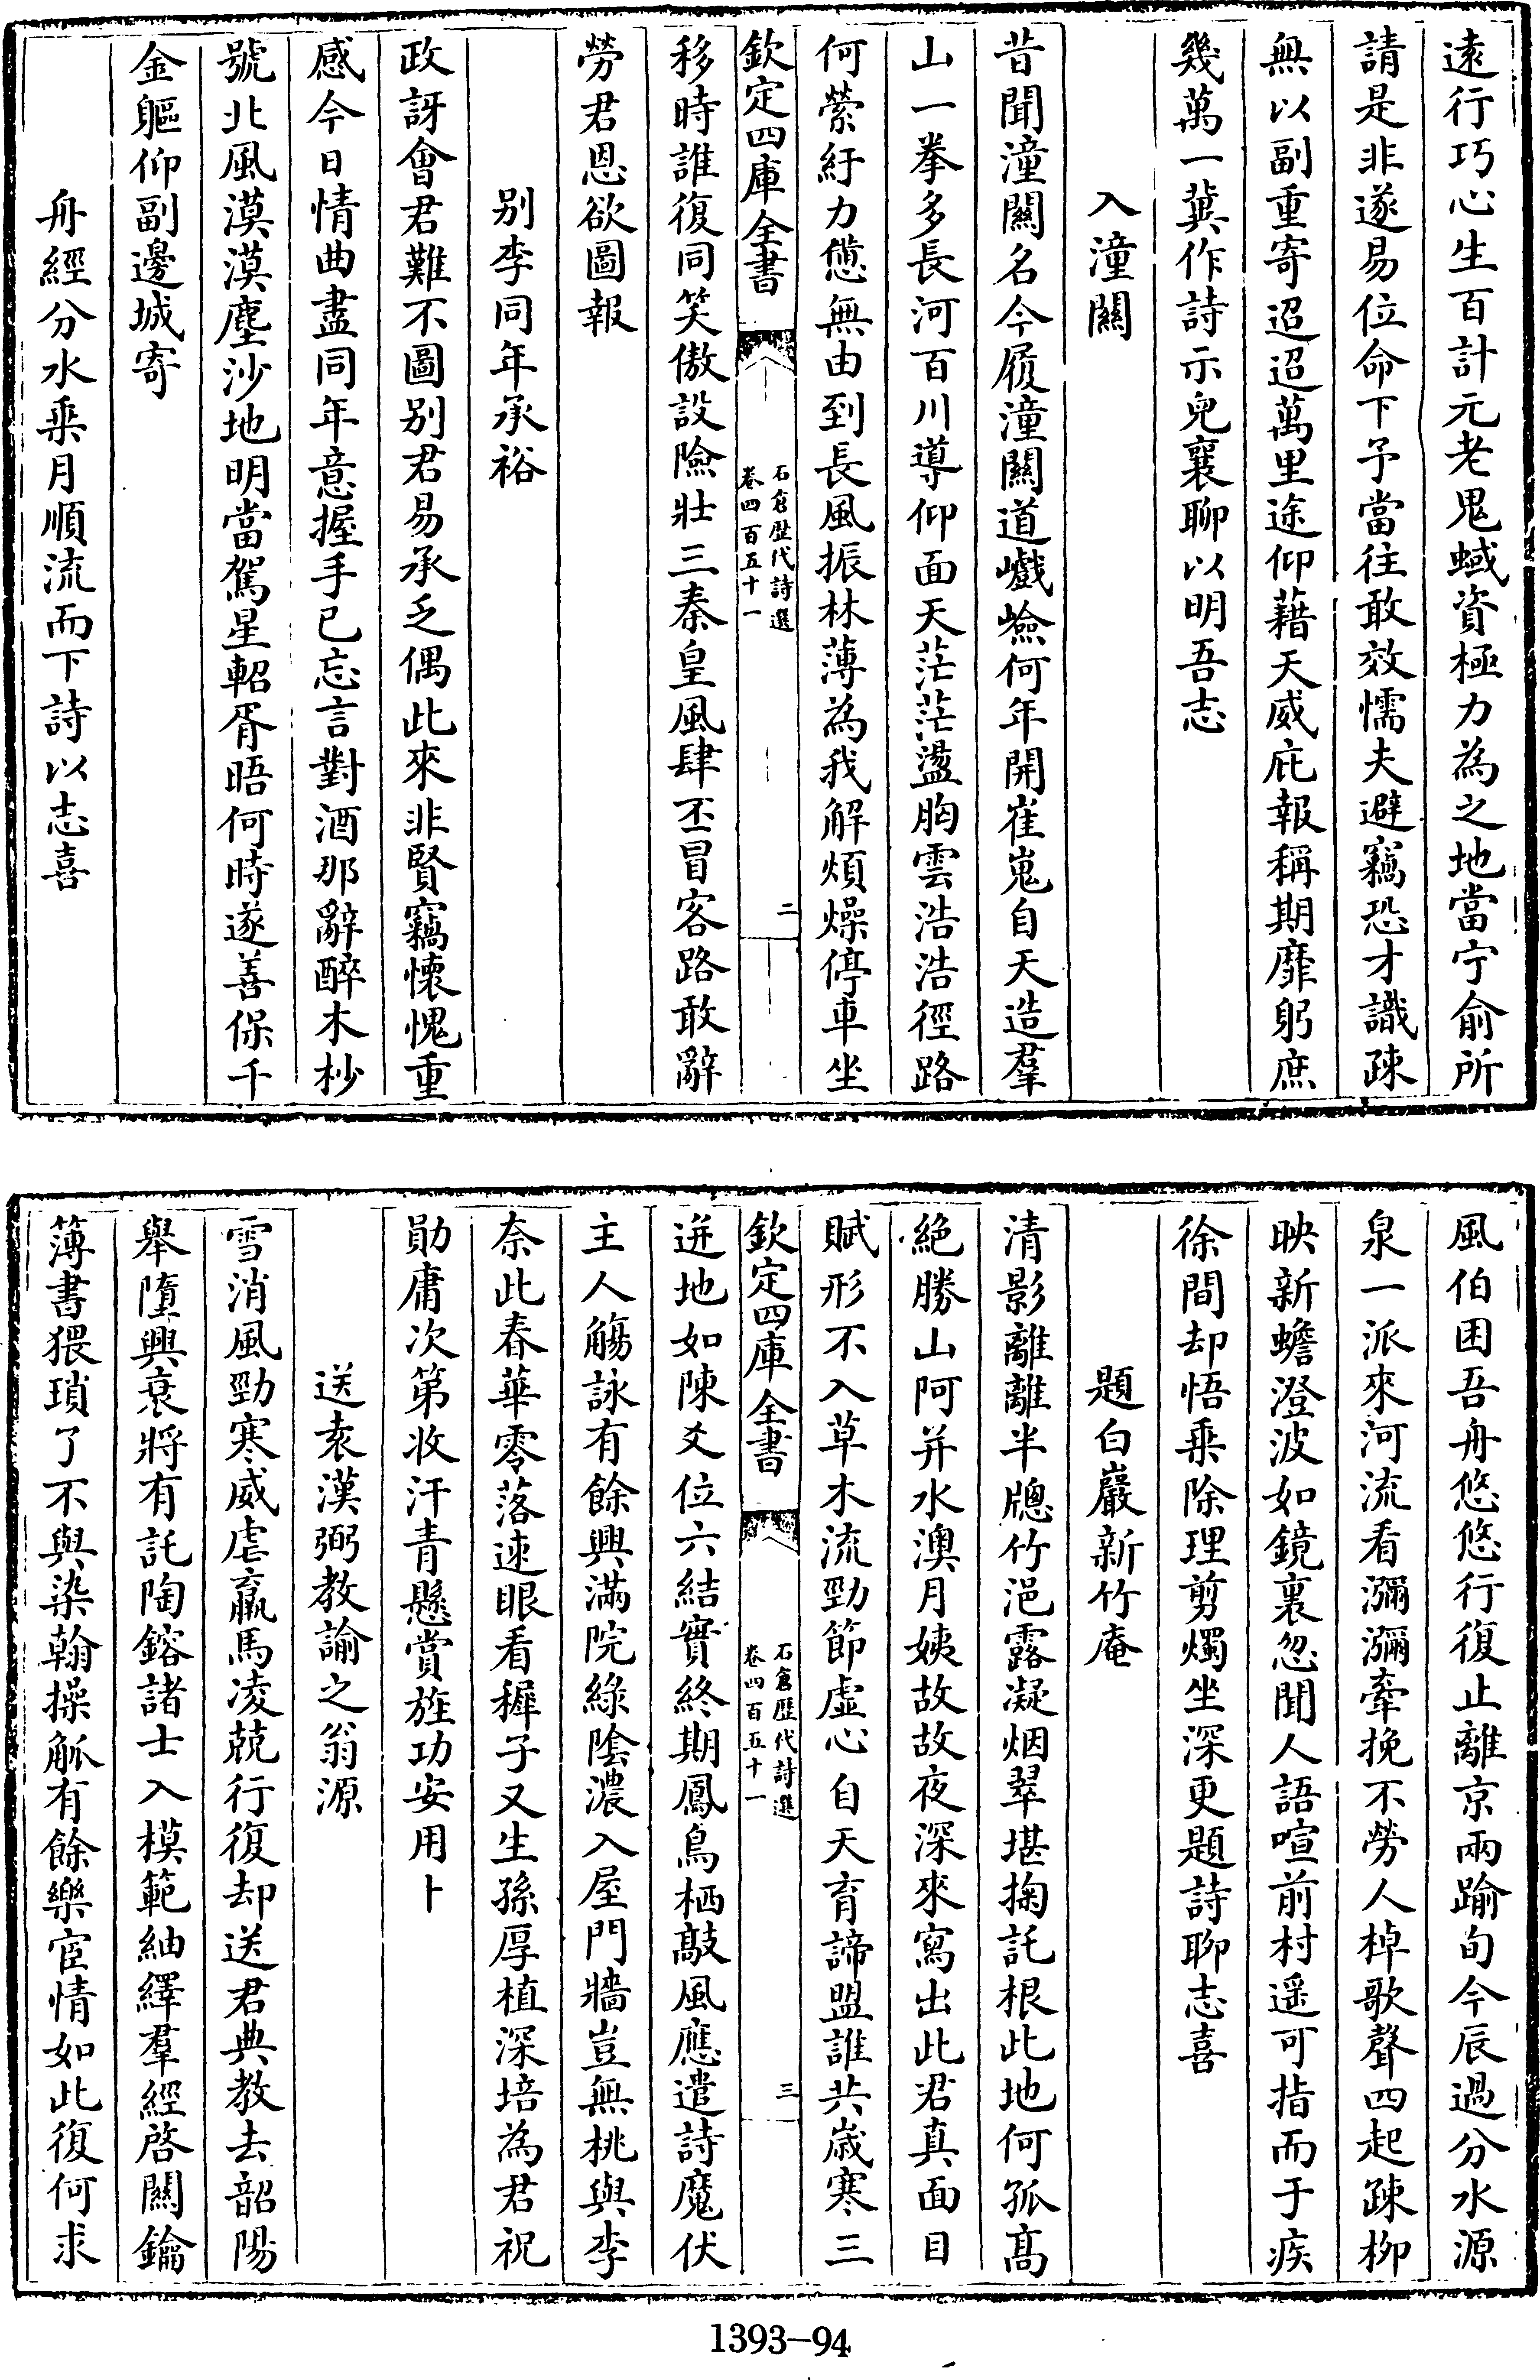 遠行巧心生百計元老鬼蜮資極力為之地當宁俞所
請是非遂易位命下予當往敢效懦夫避竊恐才識疎
無以副重寄迢迢萬里途仰藉天威庇報稱期靡躬庶
幾萬一冀作詩示兒襄聊以明吾志
入潼關
昔聞潼關名今履潼關道巇嶮何年開崔嵬自天造羣
山一拳多長河百川導仰面天茫茫盪胸雲浩浩徑路
何縈紆力憊無由到長風振林薄為我解煩燥停車坐
欽定四庫全書
石倉歷代詩選
卷四百五十一
二
移時誰復同笑傲設險壯三秦皇風肆丕冒客路敢辭
勞君恩欲圖報
別李同年承裕
政訝會君難不圖別君易承乏偶此來非賢竊懷愧重
感今日情曲盡同年意握手已忘言對酒那辭醉木杪
號北風漠漠塵沙地明當駕星軺胥晤何時遂善保千
金軀仰副邊城寄
舟經分水乘月順流而下詩以志喜
風伯困吾舟悠悠行復止離京兩踰旬今辰過分水源
泉一派來河流看瀰瀰牽挽不勞人棹歌聲四起疎柳
映新蟾澄波如鏡裏忽聞人語喧前村遥可指而于疾
徐間却悟乘除理剪燭坐深更題詩聊志喜
題白巖新竹庵
清影離離半牕竹浥露凝烟翠堪掬託根此地何孤高
絶勝山阿并水澳月姨故故夜深來寫出此君真面目
賦形不入草木流勁節虛心自天育諦盟誰共歲寒三
欽定四庫全書
石倉歷代詩選
卷四百五十一
三
迸地如陳爻位六結實終期鳳鳥栖敲風應遣詩魔伏
主人觴詠有餘興滿院綠陰濃入屋門牆豈無桃與李
奈此春華零落速眼看穉子又生孫厚植深培為君祝
勛庸次第收汗青懸賞旌功安用卜
送袁漢弼教諭之翁源
雪消風勁寒威虐羸馬凌兢行復却送君典教去韶陽
舉墮興衰將有託陶鎔諸士入模範紬繹羣經啓關鑰
簿書猥瑣了不與染翰操觚有餘樂宦情如此復何求
1393-94